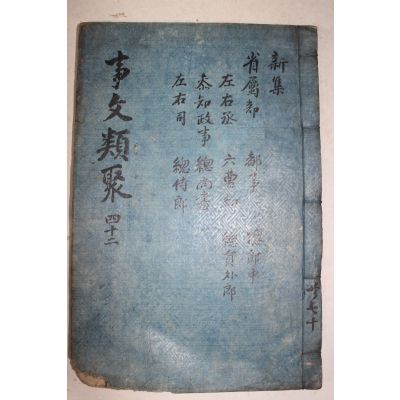 新集
省屬部
左右丞
參知政事
左右司
都事 總郎中
六曹 總員外郎
總尚書
總侍郎
事文類聚 四十二
共七十